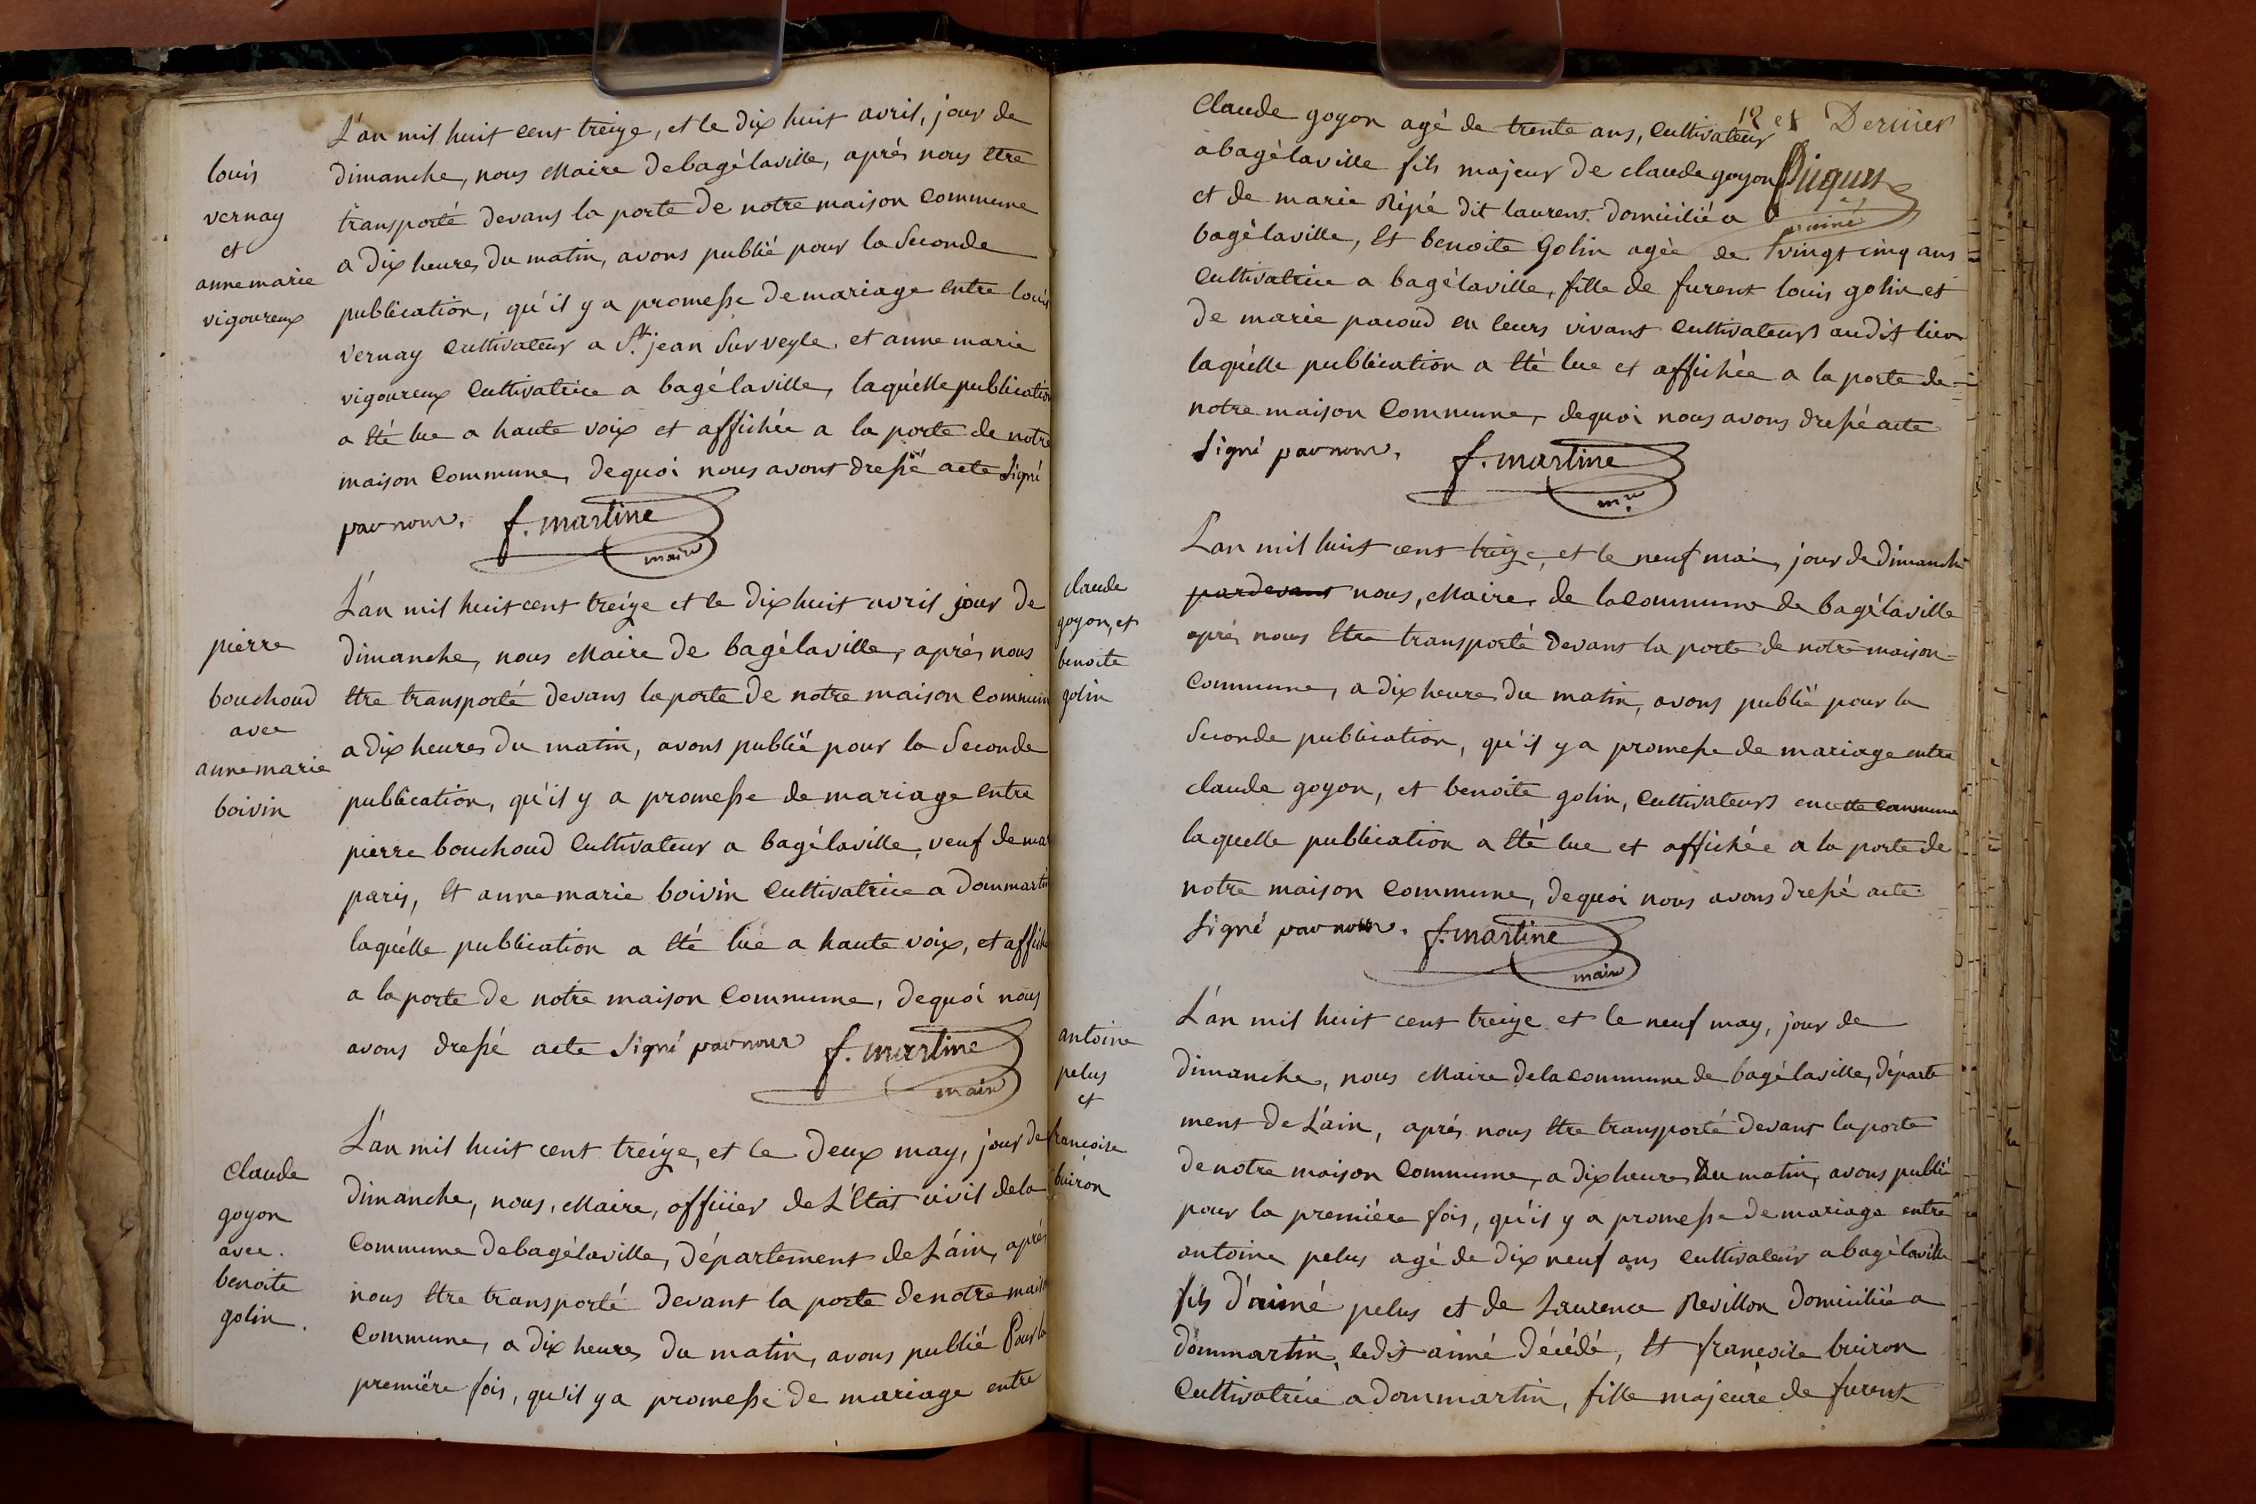 louis
vernay
et
anne marie
vigoureux
L'an mil huit cent treize, et le dix huit avril, jour de
dimanche, nous Maire de bagélaville, aprés nous être
transporté devans la porte de notre maison commune
a dix heures du matin, avons publié pour la Seconde
publication, qu'il y a promesse de mariage entre louis
vernay cultivateur a St. jean Sur veyle, et anne marie
vigoureux cultivatrice a bagélaville, laquélle publication
a été lue a haute voix et affichée a la porte de notre
maison commune, dequoi nous avons dressé acte Signé
par nous. f. martine
maire
pierre
bouchoud
avec
anne marie
boivin
L'an mil huit cent treize et le dix huit avril jour de
dimanche, nous Maire de bagélaville, aprés nous
être transporté devans la porte de notre maison commun
a dix heures du matin, avons publié pour la Seconde
publication, qu'il y a promesse de mariage entre
pierre bouchoud cultivateur a bagélaville, veuf de mar
paris, et anne marie boivin cultivatrice a dommartin
laquélle publication a été lue a haute voix, et affich
a la porte de notre maison commune, dequoi nous
avons dressé acte Signé par nous f. martine
maire
claude
goyon
avec.
benoite
golin.
L'an mil huit cent treize, et le deux may, jour de
dimanche, nous, Maire, officier de L'état civil dela
commune de bagélaville, département de L'ain, aprés
nous être transporté devant la porte de notre mais
commune, a dix heures du matin, avons publié Pour la
premiére fois, qu'il y a promesse de mariage entre
12 et Dernier
claude goyon agé de trente ans, cultivateur
a bagélaville fils majeur de claude goyon
et de marie Ripé dit laurent domicilié a
bagélaville, et benoite Golin agée de vingt cinq ans
cultivatrice a bagélaville, fille de furent louis golin et
de marie pacoud en leurs vivant cultivateurs audit lieu
laquélle publication a été lue et affichée a la porte de
notre maison commune, dequoi nous avons dressé acte
Signé par nous. f. martine
mre.
claude
goyon, et
benoite
golin
L'an mil huit cent treize, et le neuf mai, jour de dimanche
pardevant nous, Maire, de la commune de bagélaville
aprés nous être transporté devans la porte de notre maison
commune, a dix heures du matin, avons publié pour la
Seconde publication, qu'il y a promesse de mariage entre
claude goyon, et benoite golin, cultivateurs en cette commune
laquelle publication a été lue et affichée a la porte de
notre maison commune, dequoi nous avons dressé acte
Signé par nous. f. martine
maire
antoine
pelus
et
francoise
buiron
L'an mil huit cent treize et le neuf may, jour de
dimanche, nous Maire dela commune de bagélaville, départe
ment de L'ain, aprés nous être transporté devant la porte
de notre maison commune, a dix heures Du matin, avons publié
pour la premiére fois, qu'il y a promesse de mariage entre
antoine pelus agé de dix neuf ans cultivateur a bagélaville
fils d'aimé pelus et de Laurence Revillon domiciliée a
dommartin, ledit aimé décédé, et francoise buiron
cultivatrice a dommartin, fille majeure de furent